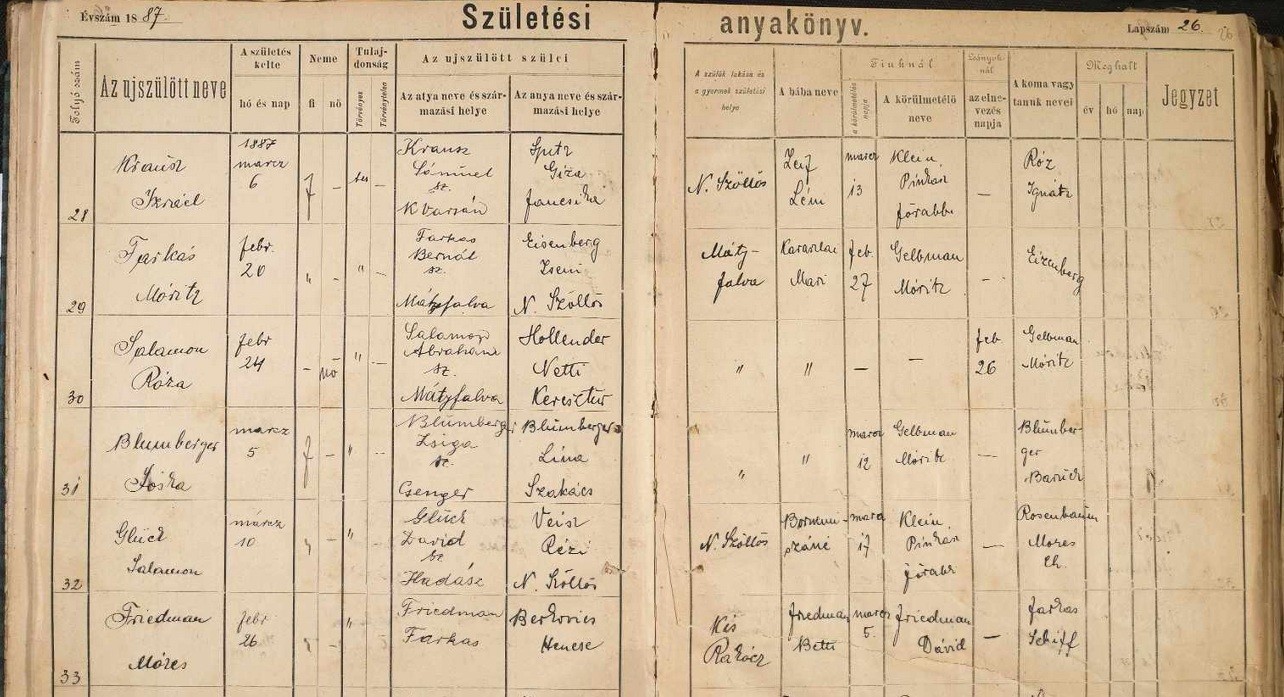 Évszám 1887.
Születési anyakönyv.
Lapszám 26.
Folyó szám
Az ujszülött neve
A születés kelte
hó és nap
Neme
fi
nö
Tulajdonság
Törvényes
Törvénytelen
Az ujszülött szülei
Az atya neve és származási helye
Az anya neve és származási helye
A szülők lakása és a gyermek születési helye
A bába neve
Fiuknál
a körülmetélés napja
A körülmetélő neve
Leányoknál
az elnevezés napja
A koma vagy tanuk nevei
Meghalt
év
hó
nap
Jegyzet
28
Krausz
Izráel
1887
marcz
6
f
–
Krausz
Sámuel
sz.
Spitz
Giza
N. Szöllös
marcz
13
Klein
Pinkasz
főrabbi
–
Róz
Ignátz
29
Farkas
Móritz
febr.
20
"
–
"
–
Farkas
Bernát
sz.
Mátyfalva
Eisenberg
Zseni
N. Szöllös
Máty-
falva
Mari
feb.
27
Gelbman
Móritz
–
Eizenberg
30
Salamon
Róza
febr
24
–
nö
"
–
Salamon
Ábrahám
sz.
Mátyfalva
Hollender
Netti
Keresztur
"
"
–
–
feb
26
Gelbman
Móritz
31
Blumberger
marcz
5
f
–
"
–
Blumberger
Zsiga
sz.
Csenger
Blumberger
Lina
Szakács
"
"
marcz
12
Gelbman
Móritz
–
Blumber-
ger
Baruch
32
Glück
Salamon
márcz
10
"
–
"
Glück
David
sz
Hadász
Veisz
Rézi
N. Szöllös
N. Szöllös
marcz
17
Klein
Pinkasz
főrabb
–
Rosenbaum
Mozes
Ch.
33
Friedman
Mózes
febr
26
"
–
"
Friedman
Farkas
Berkovics
Kis
Rakócz
Friedman
Betti
marcz
5.
Friedman
Dávid
–
Farkas
Schiff